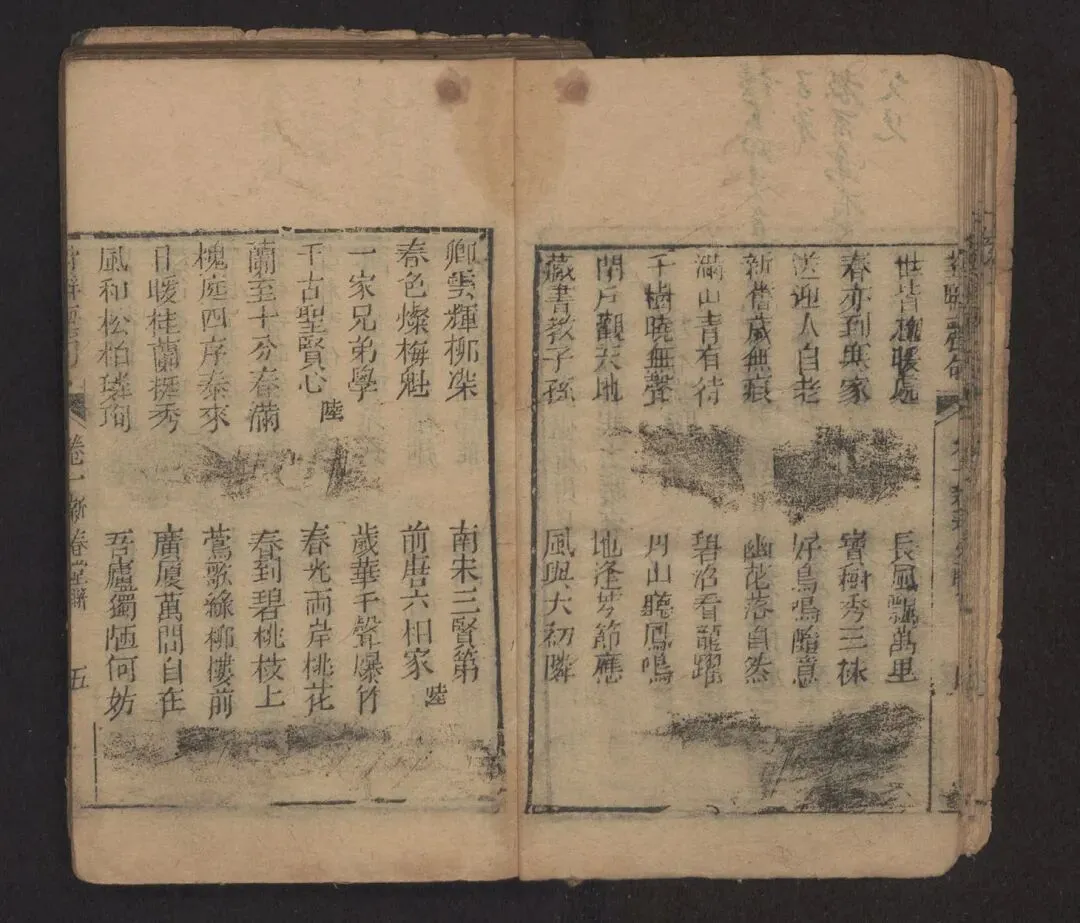 世皆暖處
春亦到寒家
送迎人自老
新舊歲無痕
滿山青有待
千樹曉無聲
閉戶觀天地
藏書教子孫
長風飄萬里
寶樹秀三株
好鳥鳴隨意
幽花落自然
碧沼看龍躍
丹山聽鳳鳴
地逢芳節應
風與太初隣
卿雲輝柳
春色燦梅魁
一家兄弟學
千古聖賢心 陸
蘭至十分春滿
槐庭四序泰來
日暖桂蘭挺秀
風和松柏璘珣
南宋三賢第
前唐六相家 陸
歲華千聲爆竹
春光兩岸桃花
春到碧桃枝上
鶯歌綠柳樓前
廣廈萬間自在
吾廬獨陋何妨
卷一 新春堂聯 五